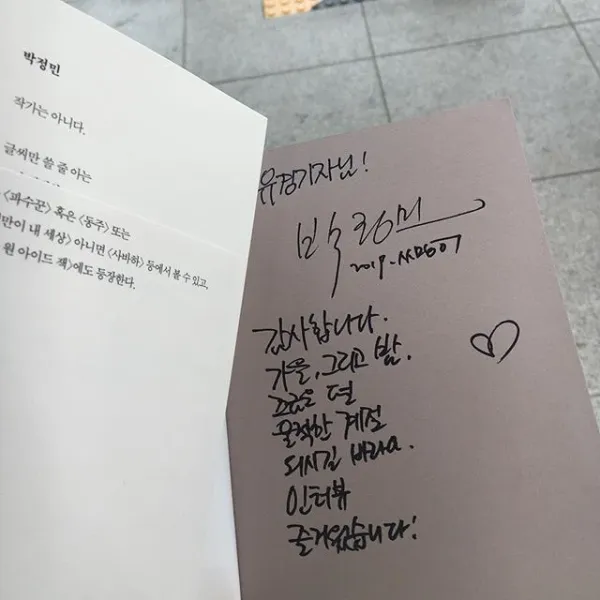 박정민
작가는 아니다.
글씨만 쓸 줄 아는
<파수꾼> 혹은 <동주> 또는
만이 내 세상> 아니면 <사바하> 등에서 볼 수 있고,
원 아이드 잭>에도 등장한다.
유경기자님!
박정민
2019.
감사합니다.
가을, 그리고 밤.
조금은 덜
울적한 계절
되시길 바라요.
인터뷰
즐거웠습니다!